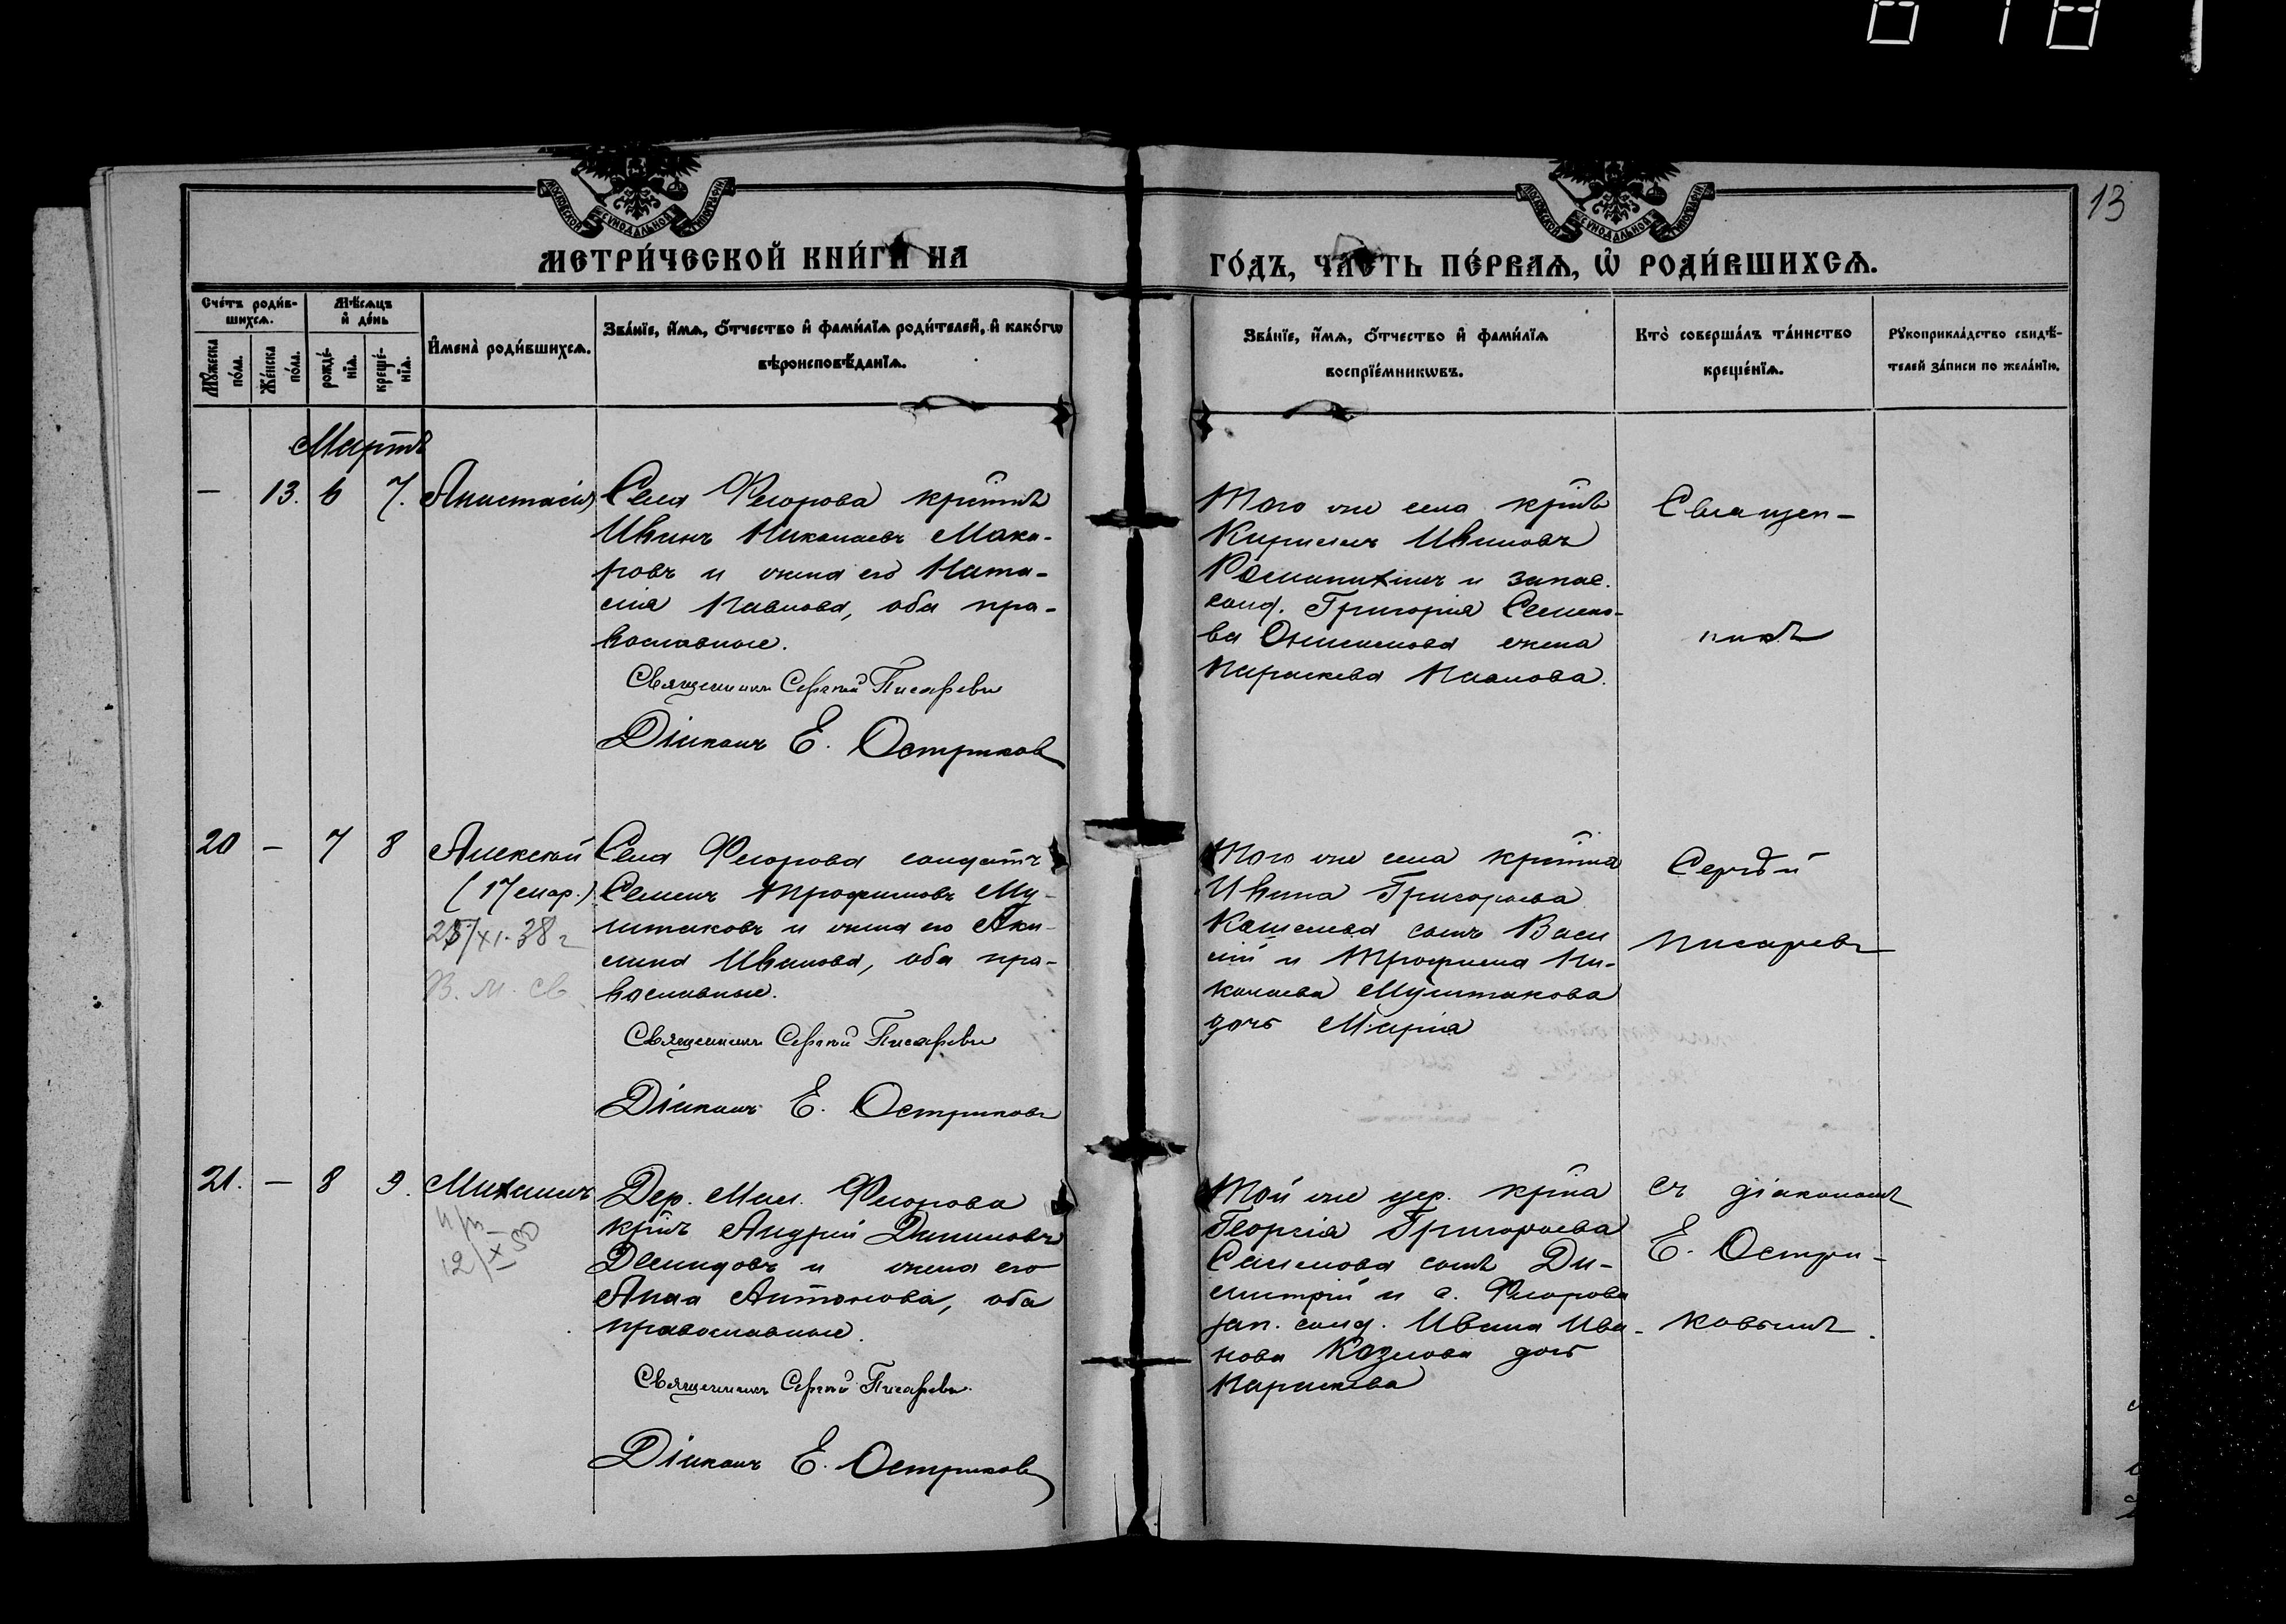 13
МЕТРИ́ЧЕСКОЙ КНИ́ГИ НА
ГО́ДЪ, ЧА́СТЬ ПЕ́РВАѦ, Ѡ҆ РОДИ́ВШИХСѦ.
Сче́тъ роди́в-
шихсѧ.
Мꙋ́жеска по́ла.
Же́нска по́ла.
Мѣ́сѧцъ
и҆ де́нь
рожде́-
нїѧ.
креще́-
нїѧ.
И҆мена̀ роди́вшихсѧ.
Зва́нїе, и҆́мѧ, ѻ҆́тчество и҆ фами́лїѧ роди́телей, и҆ како́гѡ
вѣроисповѣ́данїѧ.
Зва́нїе, и҆́мѧ, ѻ҆́тчество и҆ фами́лїѧ
воспрїе́мникѡвъ.
Кто̀ соверша́лъ та́инство
креще́нїѧ.
Рꙋкоприкла́дство свидѣ́-
телей за́писи по жела́нїю.
Мартъ
— 13. 6 7. Анастасія
Села Ѳеорова кр̃тнъ
Иванъ Николаевъ Мака-
ровъ и жена его Ната-
лія Павлова, оба пра-
вославные.
Священникъ Сергѣй Писаревъ
Діаконъ Е. Остриковъ
Того же села кр̃нъ
Кириллъ Ивановъ
и запас.
солд. Григорія Семено-
ва жена
Параскева Павлова.
Священ-
никъ
20 — 7 8 Алексѣй
(17 мар.)
/XI-38 г
В. М. св
Села Ѳеорова солдатъ
Семенъ Трофимовъ Му-
штаковъ и жена его Аки-
лина Иванова, оба пра-
вославные.
Священникъ Сергѣй Писаревъ
Діаконъ Е. Остриковъ
Того же села кр̃тнна
Ивана Григорьева
Кошелева сынъ Васи
лій и Трофима Ни-
колаева Муштакова
дочь Марія
Сергѣй
Писаревъ
21. — 8 9. Михаилъ
12/X 50
Дер. Мал. Ѳеорова
кр̃нъ Андрей Даниловъ
Демидовъ и жена его
Анна Антонова, оба
православные.
Священникъ Сергѣй Писаревъ
Діаконъ Е. Остриковъ
Той же дер. кр̃нна
Георгія Григорьева
сынъ Ди-
митрій и с. Ѳеорова
зап. солд. Ивана Ива-
нова Козлова дочь
Параскева
съ діакономъ
Е. Остри-
ковымъ.